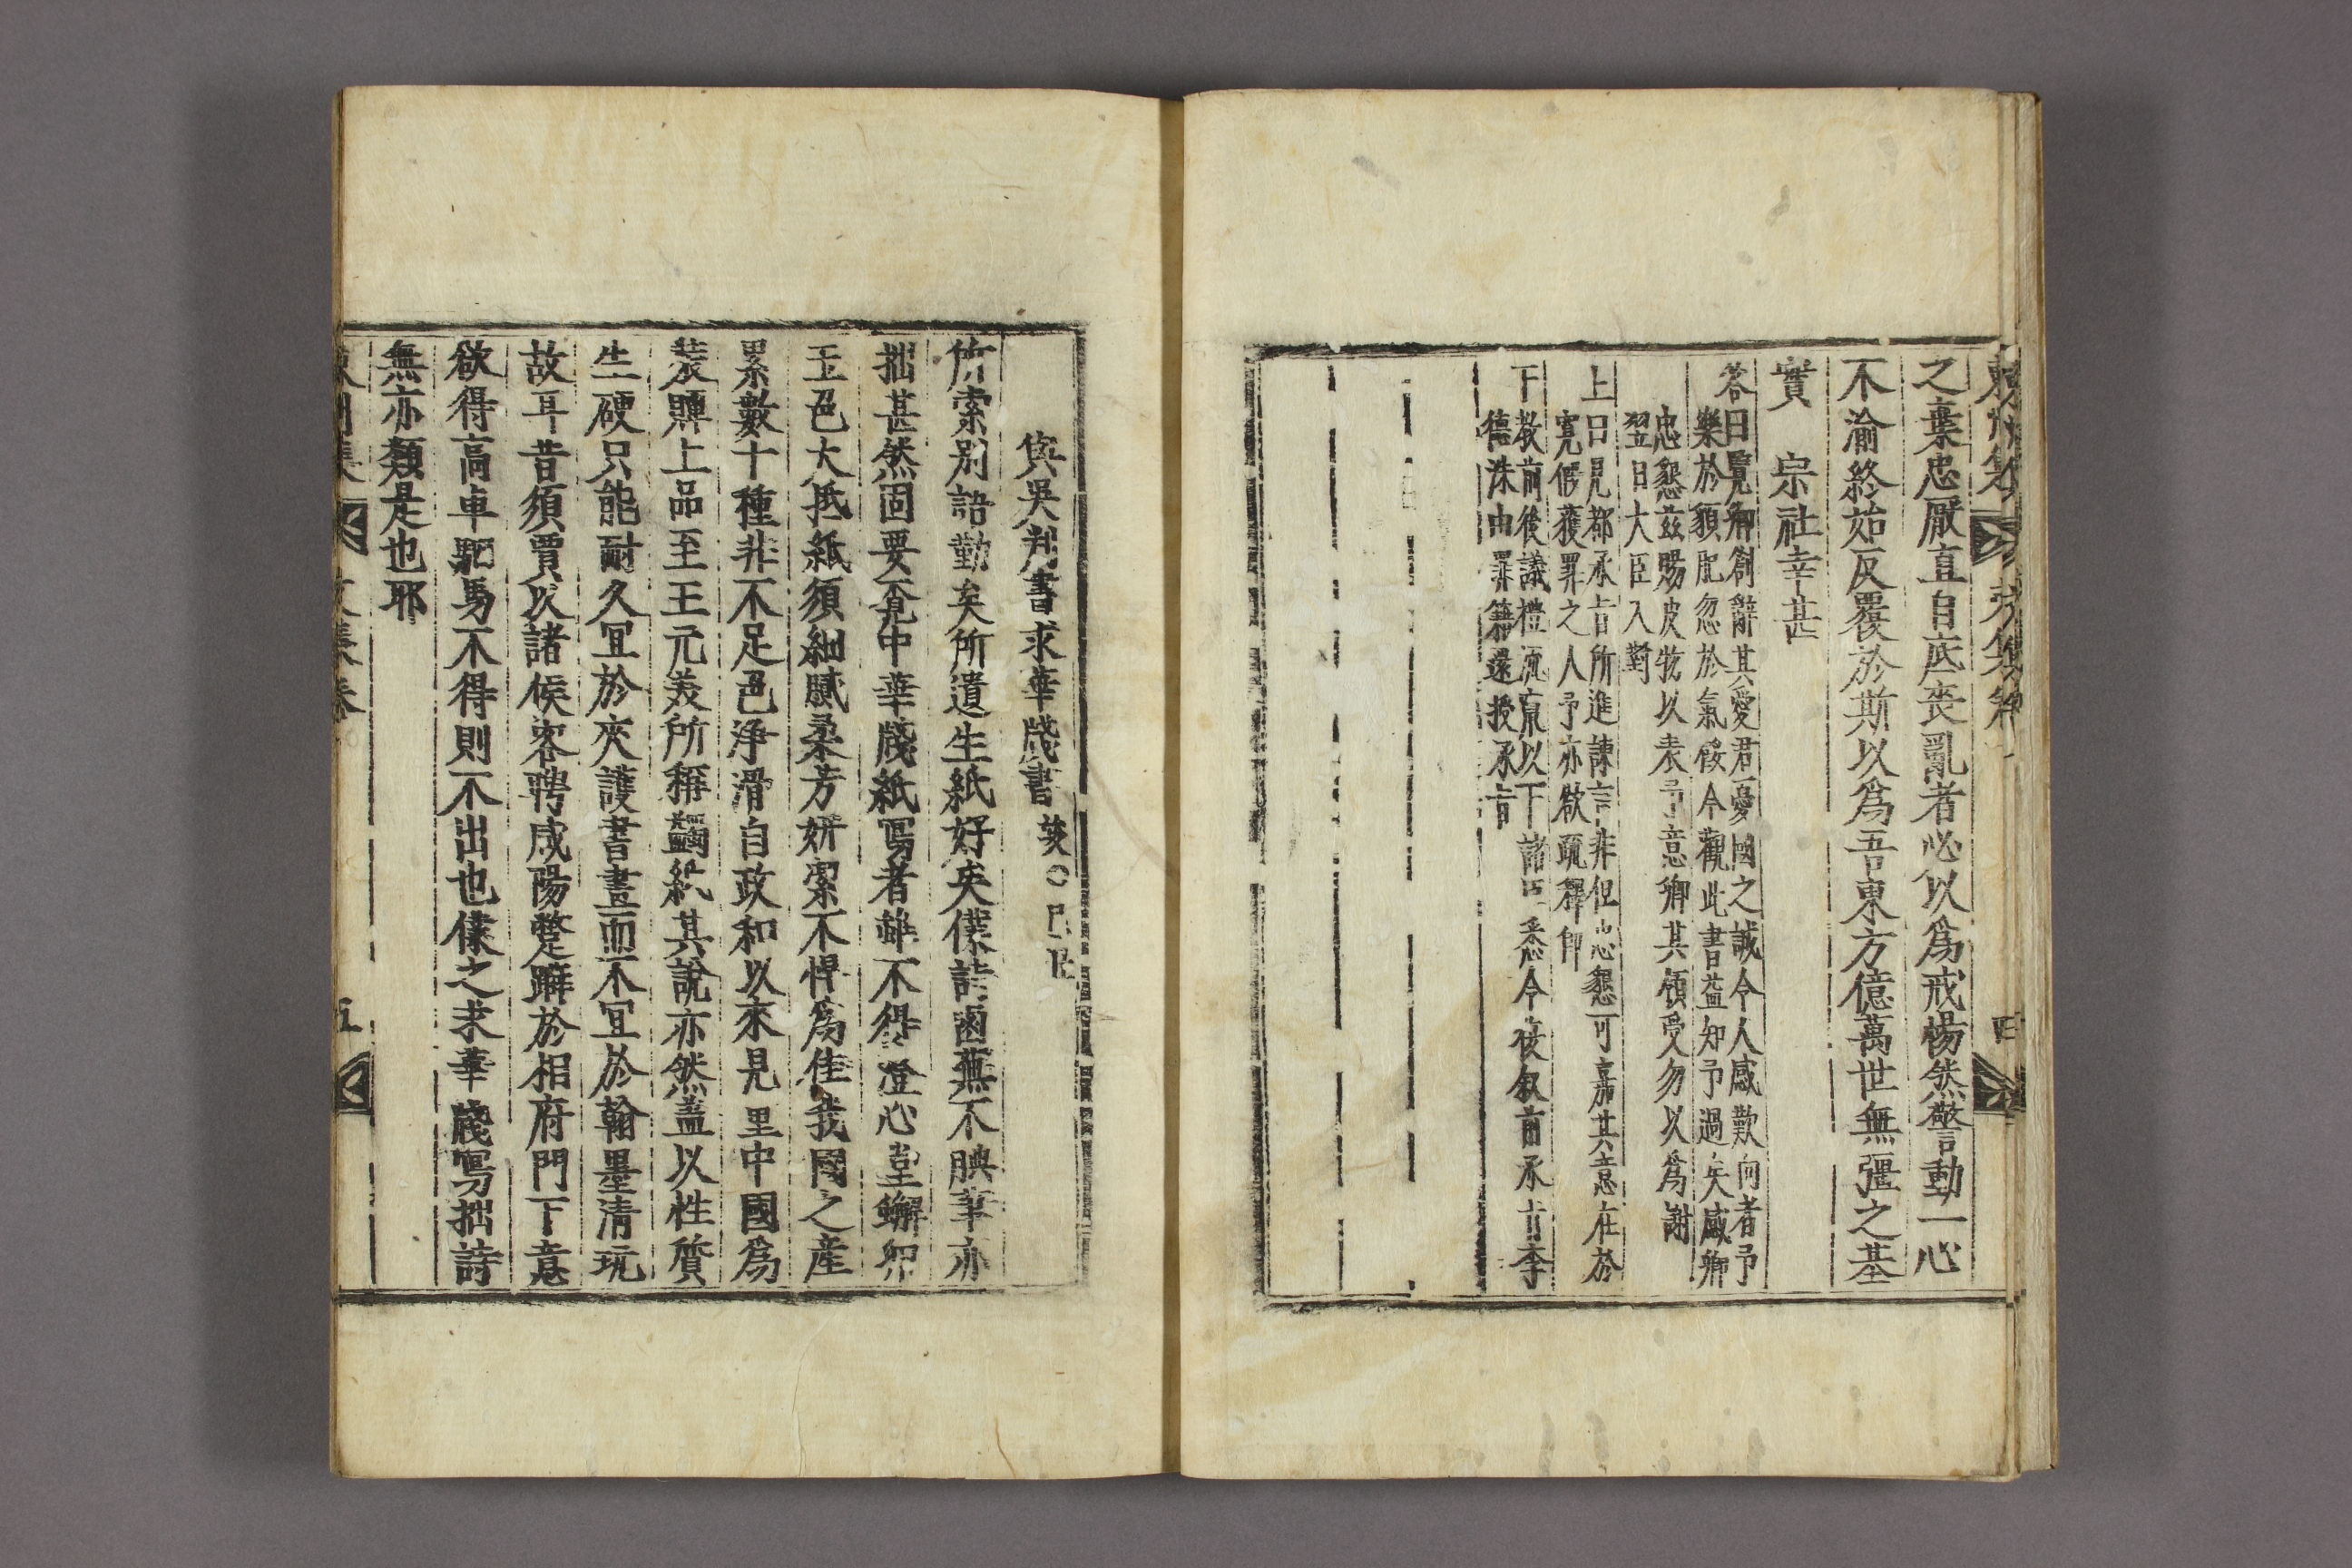 之棄忠厭直自底喪亂者必以爲戒惕然警動一心
不渝終始反覆於斯以爲吾東方億萬世無彊之基
實 宗社幸甚
答曰覽卿創辭其愛君憂國之誠令人感歎向者予
樂於順胣忽於氣餒今觀此書益知予過矣感卿
忠懇玆賜皮物以表予意卿其領受勿以爲謝
翌日大臣入對
上曰見都承旨所進諫言非但忠懇可嘉其意在於
寬假獲罪之人予亦欲疏釋
下敎前後議禮流竄以下諸臣悉令後叙前承旨李
德洙由罪籍還授承旨
四
與吳判書求華牋書 己巳
所索別語勤矣所遺生紙好矣僕詩鹵蕪不腆筆亦
拙甚然固要覔中華牋紙寫者雖不得澄心堂蠏卵
玉色大抵紙須細膩柔芳姸潔不悍爲佳我國之産
累數十種非不足色淨滑自政和以來見重中國爲
裝禪上品至王元美所稱蠲紙其說亦然盖以性質
生硬只能耐久冝於夾護書畫而不冝於翰墨淸玩
故耳昔須賈以諸侯客聘咸陽躄躃於相府門下意
欲得高車駟馬不得則不出也僕之求華牋寫拙詩
無亦類是也耶
五